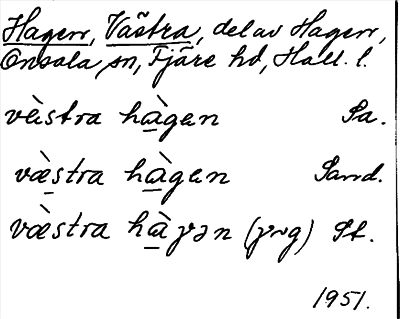 Hagen, Västra, del av Hagen,
Onsala sn, Fjäre hd, Hall. l.
væ̀stra hà̱gen Sa.
væ̀stra hà̱gen Sand.
væ̀stra hà̱γən (yng) St.
1951.